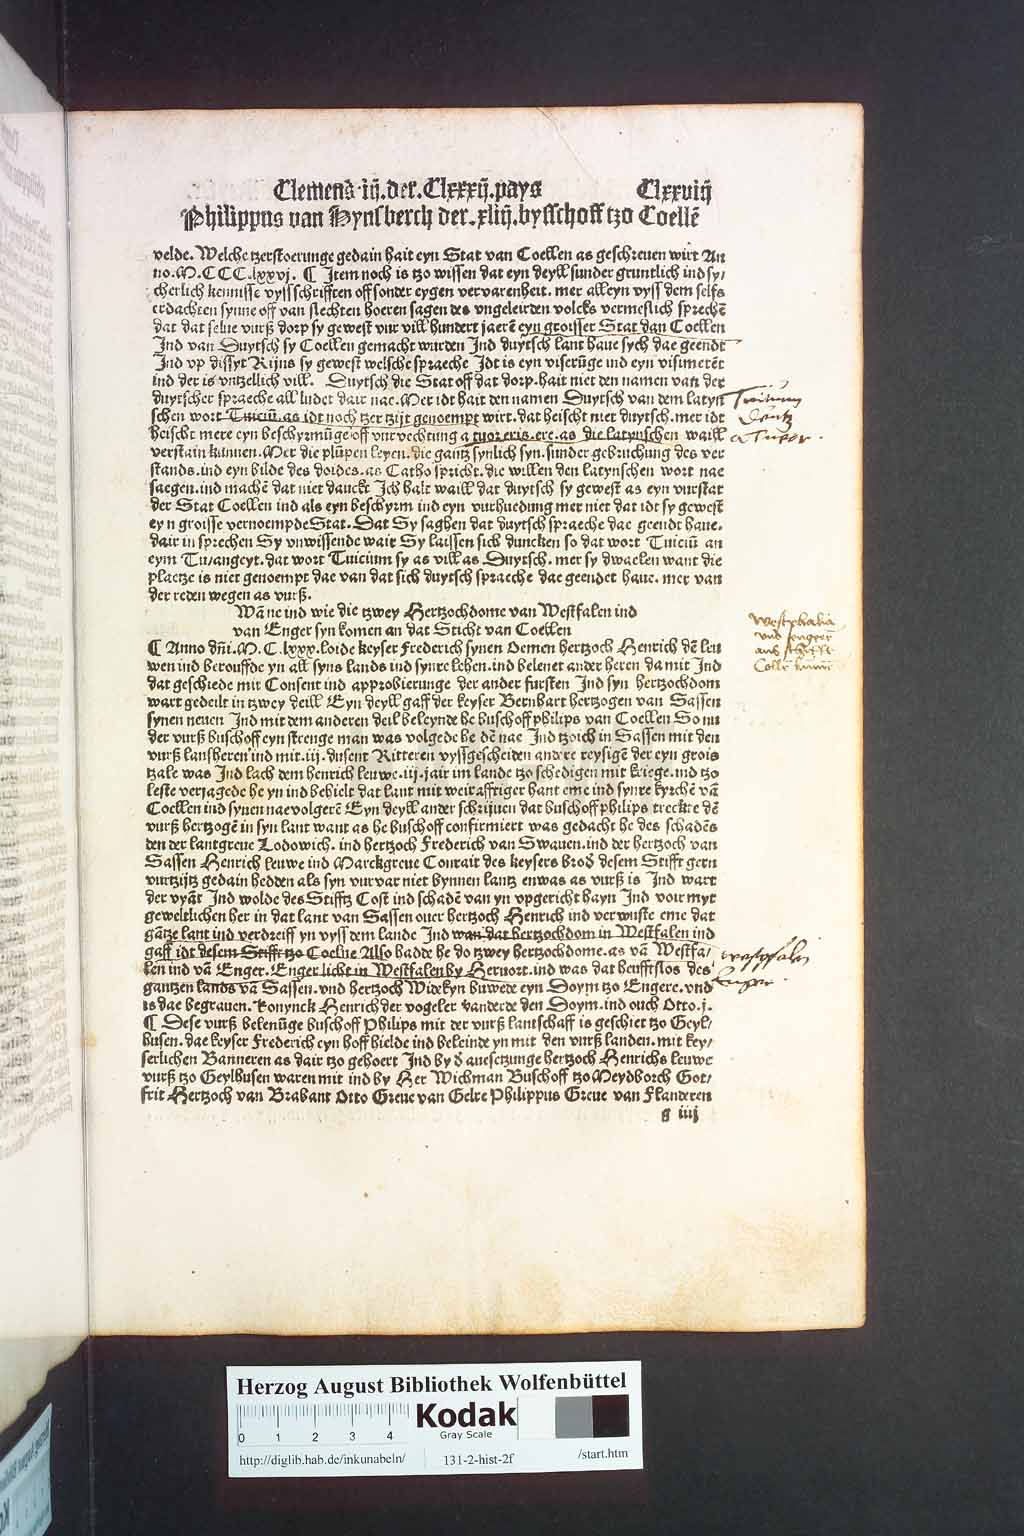 Clemens iij. der. Clxxxij. pays Clxxviij
Philippus van Hynsberch der. xliij. bysschoff tzo Coellē
velde. Welche tzerstoerunge gedain hait eyn Stat van Coellen as geschreuen wirt An
no. M.CCC.lxxvj. ¶ Item noch is tzo wissen dat eyn deyll sunder gruntlich ind sy/
cherlich kennisse vyss schrifften off sonder eygen vervarenheit. mer alleyn vyss dem selfs
erdachten synne off van slechten hoeren sagen des vngeleirden volcks vermeslich sprechē
dat dat selue vurß dorp sy gewest vur vill hundert jaerē eyn groisser Stat dan Coellen
Ind van Duytsch sy Coellen gemacht wurden Ind duytsch lant haue sych dae geendt
Ind vp dissyt Rijns sy gewest welsche spraeche Idt is eyn visetuge ind eyn visimetēt
ind der is vntzellich vill. Duytsch die Stat off dat dorp. hait niet den namen van der
duytscher spraeche all ludet dair nae. Mer idt hait den namen Duytsch van dem latyn
schen wort Tuiciū. as idt noch tzer tzijt genoempt wirt. dat heischt niet duytsch. mer idt
heischt mere eyn beschyrmūge off vur vechtung a tuor. eris. ere. as die latynschen waill
verstain kunnen. Mer die plūpen leyen. die gantz synlich syn. sunder gebruchung des ver
stands. ind eyn bilde des doides. as Catho spricht. die willen den latynschen wort nae
saegen. ind machē dat niet dauckt Ich halt waill dat duytsch sy gewest as eyn vurstat
der Stat Coellen ind als eyn beschyrm ind eyn vurhuedung mer niet dat idt sy gewest
eyn groisse vernoempde Stat. Dat Sy saghen dat duytsch spraeche dae geendt haue.
dair in sprechen Sy vnwissende wair Sy laissen sich duncken so dat wort Tuiciū an
eym Tu/angeyt. dat wort Tuicium sy as vill as Duytsch. mer sy dwaelen want die
plaetze is niet genoempt dae van dat sich duytsch spraeche dae geendet haue. mer van
der reden wegen as vurß.
Wāne ind wie die tzwey Hertzochdome van Westfalen ind
van Enger syn komen an dat Sticht van Coellen
¶ Anno dñi. M.C.lxxx. loide keyser Frederich synen Oemen hertzoch Henrich dē leu
wen ind berouffde yn all syns lands ind synre lehen. ind belenet ander heren da mit Ind
dat geschiede mit Consent ind approbierunge der ander fursten Ind syn hertzochdom
wart gedeilt in tzwey deill Eyn deyll gaff der keyser Bernhart hertzogen van Sassen
synen neuen Ind mit dem anderen deil beleynde he buschoff philips van Coellen So nu
der vurß buschoff eyn strenge man was volgede he dē nae Ind tzoich in Sassen mit den
vurß lansheren ind mit. iij. dusent Ritteren vyssgescheiden andere reysigē der eyn grois
tzale was Ind lach dem henrich leuwe. iij. jair im lande tzo schedigen mit kriege. ind tzo
leste veriagede he yn ind behielt dat lant mit weirafftiger hant eme ind synre kyrchē vā
Coellen ind synen naevolgerē Eyn deyll ander schrijuen dat buschoff philips treckte dē
vurß hertzogē in syn lant want as he buschoff confirmiert was gedacht he des schadēs
den der lantgreue Lodowich. ind hertzoch Frederich van Swauen. ind der hertzoch van
Sassen Henrich leuwe ind Marckgreue Conrait des keysers brod desem Stifft gern
vurtzijtz gedain hedden als syn vurvar niet bynnen lantz enwas as vurß is Ind wart
der vyāt Ind wolde des Stifftz Cost ind schadē van yn vpgericht hayn Ind voir myt
geweltlichen her in dat lant van Sassen ouer hertzoch Henrich ind verwuste eme dat
gātze lant ind verdreiff yn vyss dem lande Ind wan dat hertzochdom in Westfalen ind
gaff idt desem Stifft tzo Coelne Also hadde he do tzwey hertzochdome. as vā Westfa/
len ind vā Enger. Enger licht in Westfalen by Hervort. ind was dat heufftslos des
gantzen lands vā Sassen. vnd hertzoch Widekyn buwede eyn Doym tzo Engere. vnd
is dae begrauen. Konynck Henrich der vogeler vanderde den Doym. ind ouch Otto. j.
¶ Dese vurß belenūge buschoff Philips mit der vurß lantschaff is geschiet tzo Geyl/
husen. dae keyser Frederich eyn hoff hielde ind beleinde yn mit den vurß landen. mit key/
serlichen Banneren as dair tzo gehoert Ind by d auesetzunge hertzoch Henrichs leuwe
vurß tzo Geylhusen waren mit ind by Her Wichman Buschoff tzo Meydborch Got/
frit Hertzoch van Brabant Otto Greue van Gelre Philippus Greue van Flanderen
g iiij
Tuitium
Deutz
a Tueor.
Westphalia
vnd Enger
ans Stifft
Westphalen
Enger.
Herzog August Bibliothek Wolfenbüttel
0 1 2 3 4
Kodak
Gray Scale
http://diglib.hab.de/inkunabeln/ 131-2-hist-2f /start.htm